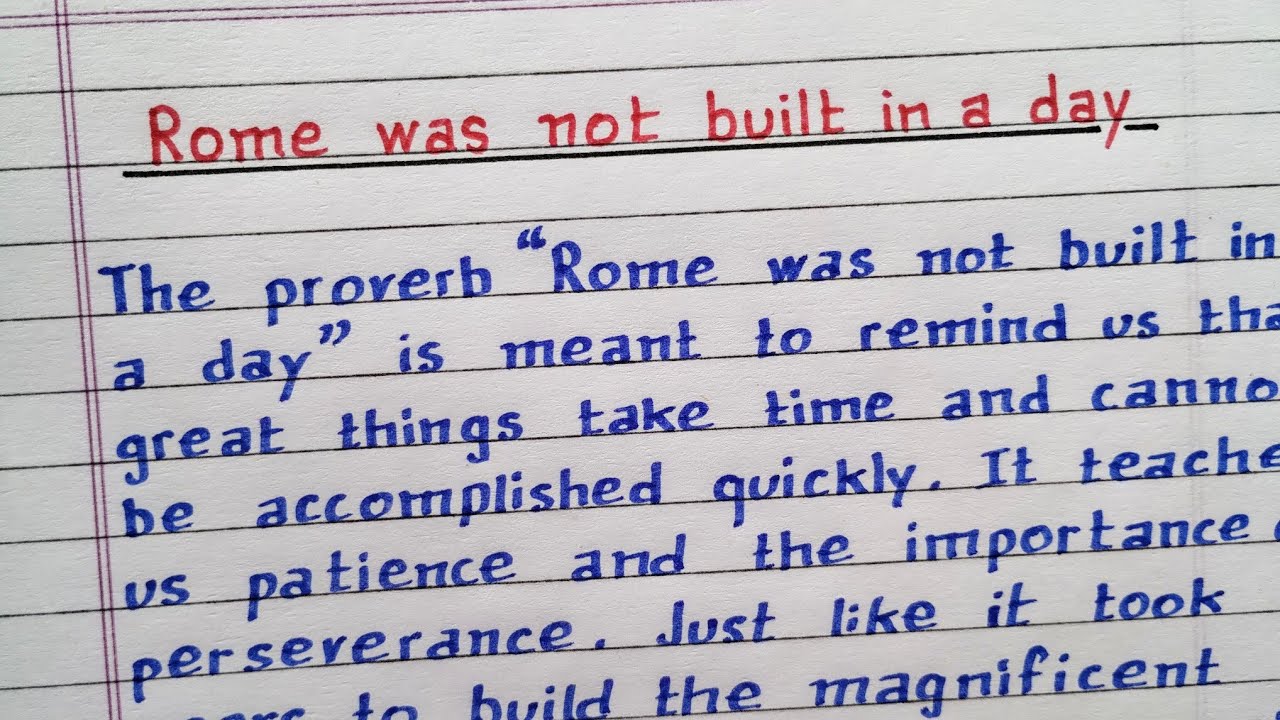 Rome was not built in a day
The proverb “Rome was not built in
a day” is meant to remind us tha
great things take time and canno
be accomplished quickly. It teache
us patience and the importance
perseverance. Just like it took
to build the magnificent